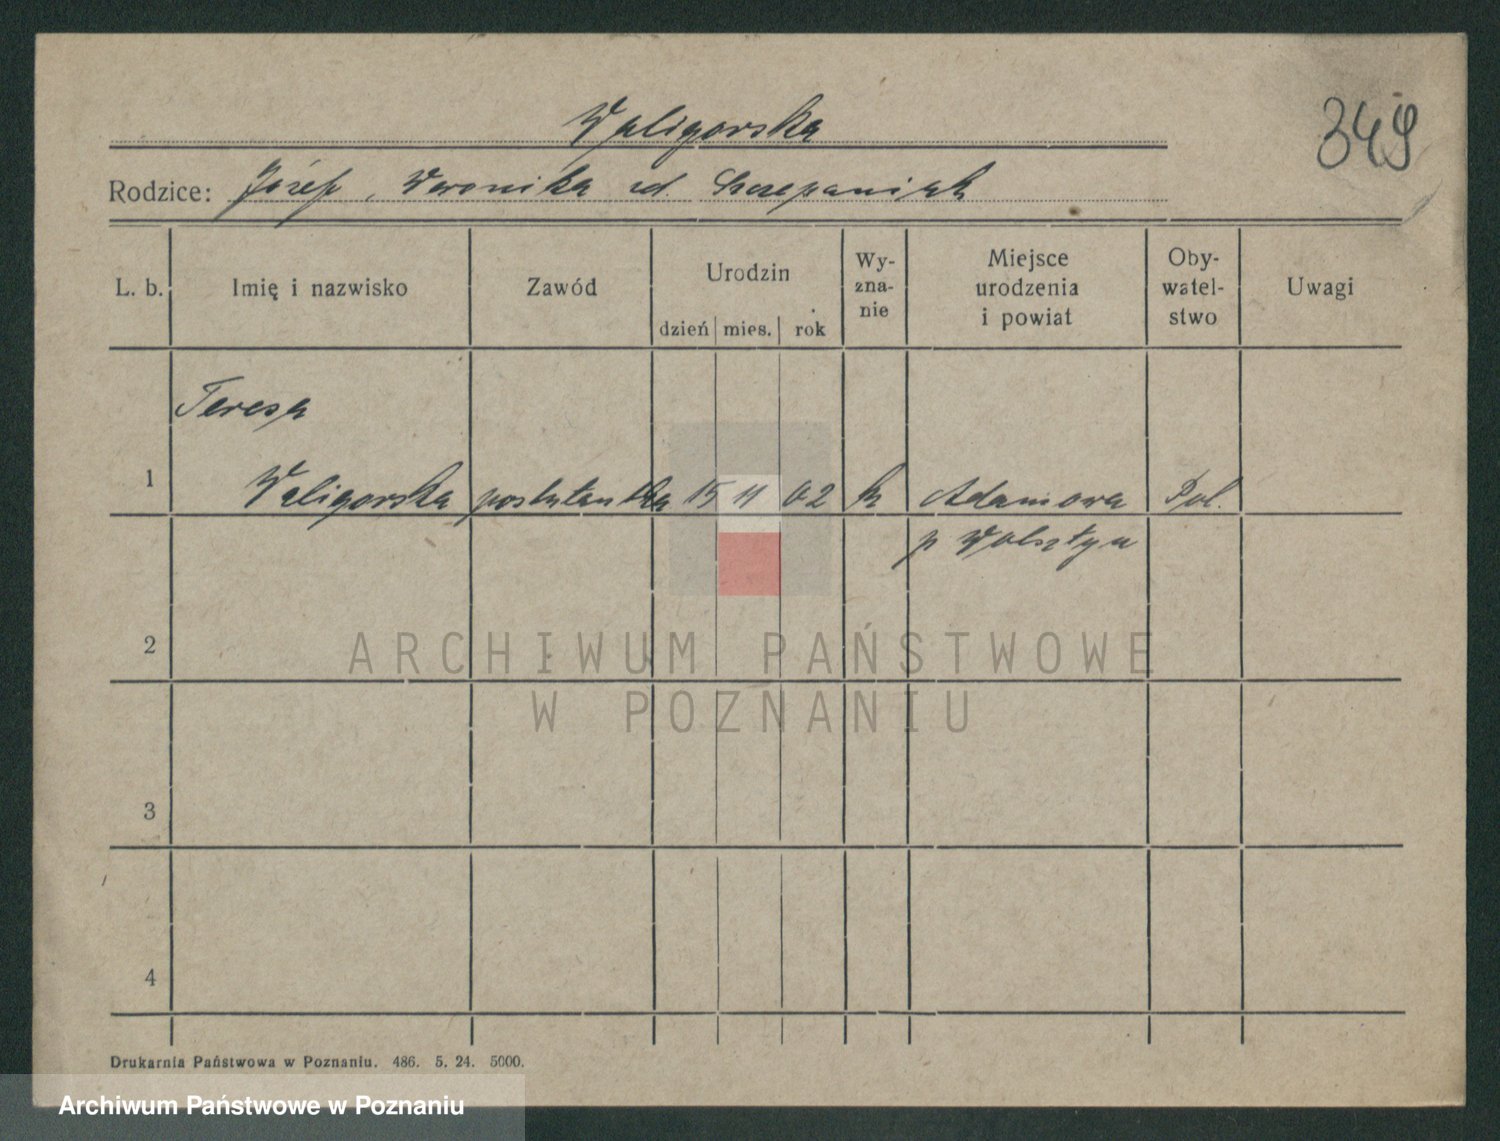 Waligorska
349
Rodzice: Józef, Weronika zd. Szczepaniak
L. b.
Imię i nazwisko
Zawód
Urodzin
dzień mies. rok
Wy-
zna-
nie
Miejsce
urodzenia
i powiat
Oby-
watel-
stwo
Uwagi
Teresa
1 Waligorska postulantka 15 11 02 k Adamowa Pol.
p Wolsztyn
2
3
4
ARCHIWUM PAŃSTWOWE
W POZNANIU
Drukarnia Państwowa w Poznaniu. 486. 5. 24. 5000.
Archiwum Państwowe w Poznaniu